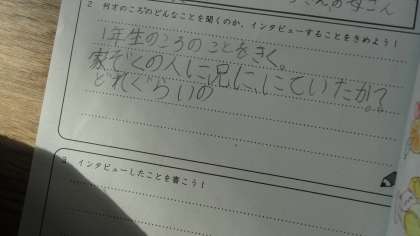 さんのお母さん
2 何才のころのどんなことを聞くのか、インタビューすることをきめよう！
1年生のころのことをきく。
家ぞくの人に兄に、にていたか？
どれぐらいの
3 インタビューしたことを書こう！